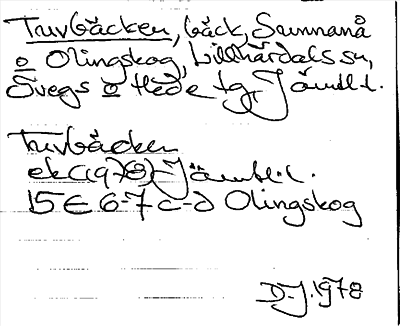 Truvbäcken, bäck, Sunnanå
o Olingskog, Lillhärdals sn,
Svegs o Hede tg, Jämtl l.
Truvbäcken
ek (1978) Jämtl. l.
15E 6-7 c-d Olingskog
D-J. 1978